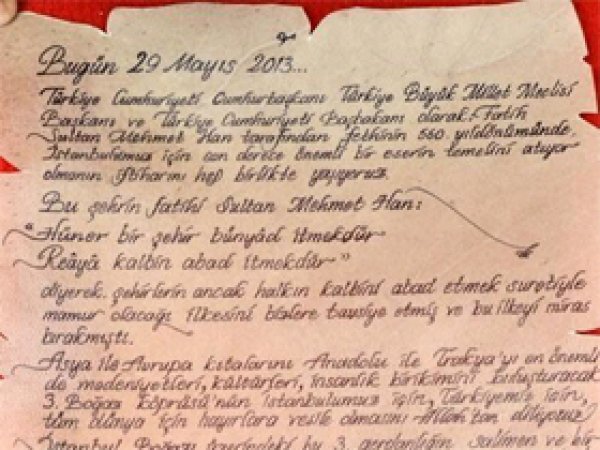 Bugün 29 Mayıs 2013...
Türkiye Cumhuriyeti Cumhurbaşkanı Türkiye Büyük Millet Meclisi
Başkanı ve Türkiye Cumhuriyeti Başbakanı olarak; Fatih
Sultan Mehmet Han tarafından fethinin 560. yıldönümünde,
İstanbulumuz için son derece önemli bir eserin temelini atıyor
olmanın iftiharını hep birlikte yaşıyoruz.
Bu şehrin fatihi Sultan Mehmet Han:
"Hüner bir şehir bünyâd itmekdür
Reâyâ kalbin abad itmekdür"
diyerek. şehirlerin ancak halkın kalbini abad etmek suretiyle
mamur olacağı ilkesini bizlere tavsiye etmiş ve bu ilkeyi miras
bırakmıştı.
Asya ile Avrupa kıtalarını Anadolu ile Trakya'yı en önemli
de medeniyetleri, kültürleri, insanlık birikimini buluşturacak
3. Boğaz Köprüsü'nün İstanbulumuz için, Türkiyemiz için,
tüm dünya için hayırlara vesile olmasını Allah'tan diliyoruz.
İstanbul Boğazı üzerindeki bu 3. gerdanlığın salimen ve bir